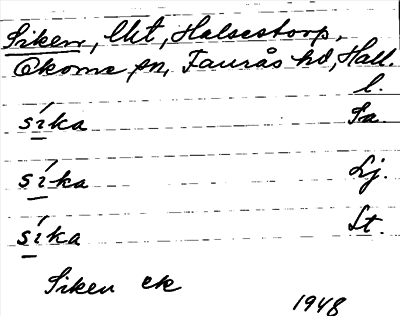 Siken, Ukt, Halsestorp,
Okome sn, Faurås hd, Hall.
l.
síka Fa.
síka Lj.
síka St.
Siken ek
1948